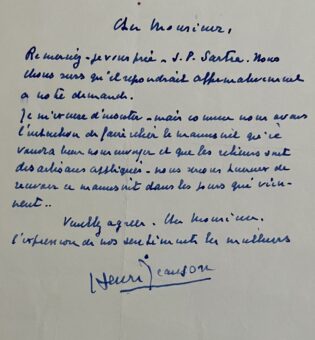 Cher Monsieur,
Remerciez - je vous prie - J.P. Sartre. Nous
étions surs qu'il répondrait affirmativement
a notre demande.
Je m'excuse d'insister - mais comme nous avons
l'intention de faire relier le manuscrit qu'il
voudra bien nous envoyer et que les relieurs sont
des artisans appliqués - nous serons heureux de
recevoir ce manuscrit dans les jours qui vien-
nent..
Veuillez agréer. Cher Monsieur.
l'expression de nos sentiments les meilleurs
Henri Jeanson